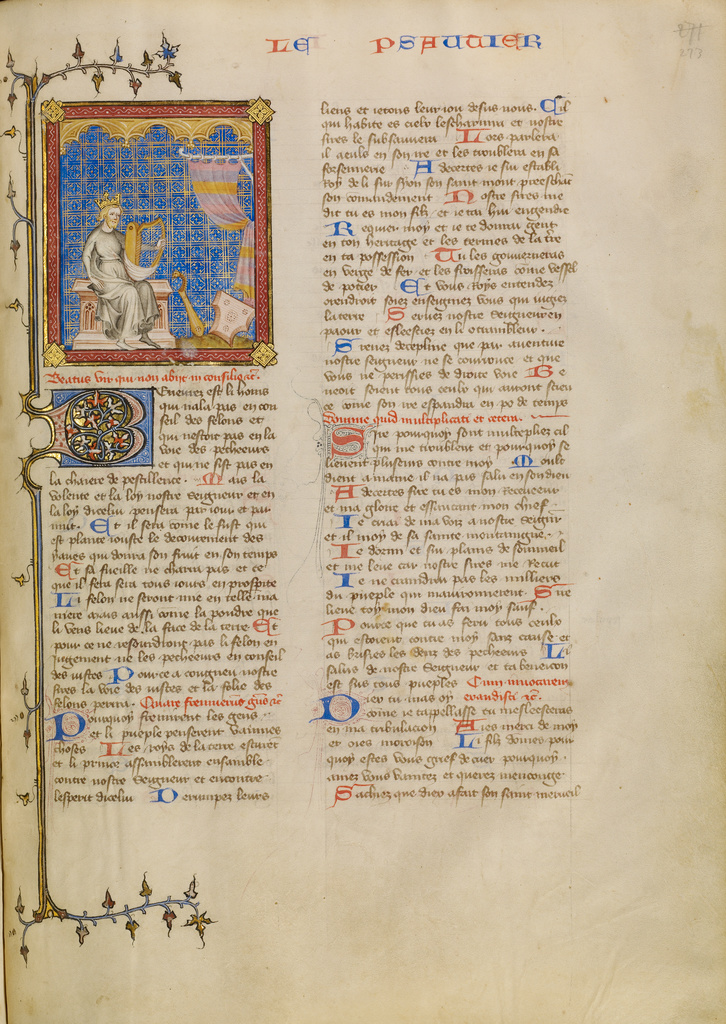 LE PSAUTIER
271
273
Beatus vir qui non abijt in consilio etc.
Bneurez est li homs
qui nala pas en con
seil des felons et
qui nestoit pas en la
voie des pecheeurs
et qui ne sist pas en
la chaiere de pestillence. Mais la
volente et la loy nostre seigneur et en
la loy dicelui pensera par iour et par
nuit. Et il sera come le fust qui
est plante iouste le decourement des
yaues qui donra son fruit en son temps
Et sa fueille ne charra pas et ce
que il fera sera tous iours en prosperite
Li felon ne seront mie en telle ma
niere mais aussi come la poudre que
li vens lieve de la face de la terre Et
pour ce ne resourdront pas li felon en
iugement ne les pecheeurs en conseil
des iustes Pour ce a congneu nostre
sires la voie des iustes et la folie des
felons perira. Quare fremuerunt gentes etc
Pourquoy fremirent les gens
et li pueple penserent vainnes
choses Les roys de la terre esturent
et li prince assemblerent ensamble
contre nostre seigneur et encontre
lesperit dicelui Derumpez leurs
liens et ietons leur iou desus nous. Cil
qui habite es cielx les escharnira et nostre
sires le subsannera Lors parlera
il a eulx en son ire et les troublera en sa
forsennerie Adecertes ie sui establi
roy de li sur syon son saint mont preeschant
son comandement Nostre sires me
dit tu es mon filz et ie tai hui engendre
Requier moy et ie te donrai gent
en ton heritage et les termes de la terre
en ta possession Tu les gouverneras
en verge de fer et les froisseras come vessel
de potier Et vous roys entendez
orendroit soiez enseigniez vous qui iugiez
la terre Servez nostre seigneur en
paour et esleesciez en li o trembleur.
Prenez decepline que par aventure
nostre seigneur ne se courouce et que
vous ne perissies de droite voie Be
neoit soient tous ceulx qui auront
ce come son ire espandra en po de temps
Domine quid multiplicati et cetera.
Sire pourquoy sont multepliez cil
qui me troublent et pourquoy se
lievent plusieurs contre moy Moult
dient a mame il na pas salu en son dieu
Adecertes sire tu es mon receveeur
et ma gloire et essaucant mon chief
Ie criai de ma voiz a nostre seigneur
et il moy de sa sainte montaingne.
Ie dormi et fui plains de sommeil
et me leve car nostre sires me recut
Ie ne craindrai pas les milliers
du pueple qui mavironnerent Sire
lieve toy mon dieu fai moy sauf.
Pource que tu as feru tous ceulx
qui estoient contre moy sanz cause et
as brisies les dens des pecheeurs Li
salus de nostre seigneur et ta beneicon
est sus tous pueples Cum invocarem
Dieu tu mas oy exaudisti etc.
come ie tappellasse tu mesleesceras
en ma tribulacion Aies merci de moy
et oies moroison Li filz domes pour
quoy estes vous grief de cuer pourquoy
amez vous vanitez et querez menconge
Sachiez que dieu a fait son saint merveil